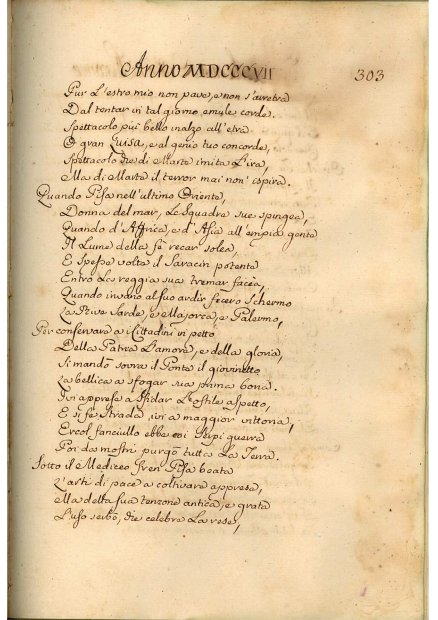 Anno MDCCCVII 303
Pur l'estro mio non pave, e non s'arretra
Dal tentar in tal giorno emule corde.
Spettacolo piu bello inalzo all'etra
O gran Luisa, e al genio tuo concorde,
Spettacolo che di Marte imita l'ira,
Ma di Marte il terror mai non ispira.
Quando Pisa nell'ultimo Oriente,
Donna del mar, le Squadre sue spingea,
Quando d'Affrica, e d'Asia all'empia gente
Il Lume della fè recar solea,
E spesse volte il Saracin potente
Entro la reggia sua tremar facea,
Quando invano al suo ardir fecero schermo
Le Rive Sarde, e Majorca, e Palermo,
Per conservare ai Cittadini in petto
Della Patria l'amore, e della gloria,
Si mandò sovra il Ponte il giovinetto
La bellica a sfogar sua prima boria.
Ivi apprese a sfidar l'ostile aspetto,
E si fe strada ivi a maggior vittoria,
Ercol fanciullo ebbe coi Serpi guerra
Poi da mostri purgò tutta la Terra.
Sotto il Mediceo fren Pisa beata
L'arti di pace a coltivare apprese,
Ma della sua tenzone antica, e grata
L'uso serbò, che celebre la rese,